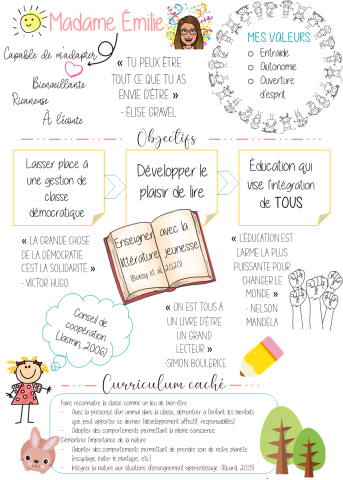 Madame Émilie
Capable de m'adapter
Bienveillante
Ricaneuse
À l'écoute
« TU PEUX ÊTRE
TOUT CE QUE TU AS
ENVIE D'ÊTRE »
- ÉLISE GRAVEL
MES VALEURS
o Entraide
o Autonomie
o Ouverture
d'esprit
Objectifs
Laisser place à
une gestion de
classe
démocratique
Développer le
plaisir de lire
Éducation qui
vise l'intégration
de TOUS
« LA GRANDE CHOSE
DE LA DÉMOCRATIE,
C'EST LA SOLIDARITÉ »
- VICTOR HUGO
Enseigner avec la
littérature jeunesse
(Boissy et al., 2020)
« L'ÉDUCATION EST
L'ARME LA PLUS
PUISSANTE POUR
CHANGER LE
MONDE »
- NELSON
MANDELA
Conseil de
coopération
(Jasmin, 2006)
« ON EST TOUS À
UN LIVRE D'ÊTRE
UN GRAND
LECTEUR »
-SIMON BOULERICE
Curriculum caché
Faire reconnaître la classe comme un lieu de bien-être
- Avec la présence d'un animal dans la classe, démontrer à l'enfant les bienfaits
que peut apporter ce dernier (développement affectif, responsabilités)
- Adopter des comportements permettant la pleine conscience
Démontrer l'importance de la nature
- Adopter des comportements permettant de prendre soin de notre planète
(recyclage, éviter le plastique, etc.)
- Intégrer la nature aux situations d'enseignement-apprentissage (Ricard, 2015)